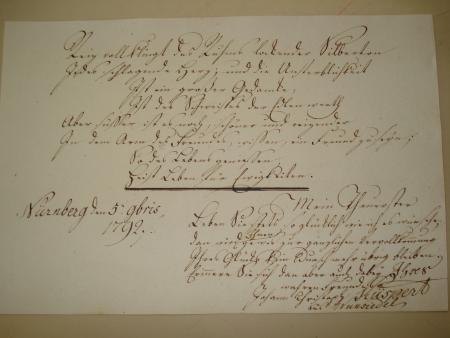 Reizvoll klingt des Ruhms lockender Silberton
In das schlagende Herz, und die Unsterblichkeit
Ist ein großer Gedanke,
Ist des Schweißes der Edlen werth
Aber süßer ist noch, schöner und reizender
In dem Arm des Freundes, wissen, ein Freund zu seyn;
So das Leben geniessen,
Heist Leben für Ewigkeiten.
Nürnberg den 5t 9bris
1792.
Mein Theuerster
Leben Sie stets so glücklich wie ich es wünsche,
dan wird gewis zur gänzlichen Vervollkomung
Ihres Glücks kein Wunsch mehr übrig bleiben,
Sie sich dan aber auch dabey Ihres
wahren Freundes
Johann Christoph